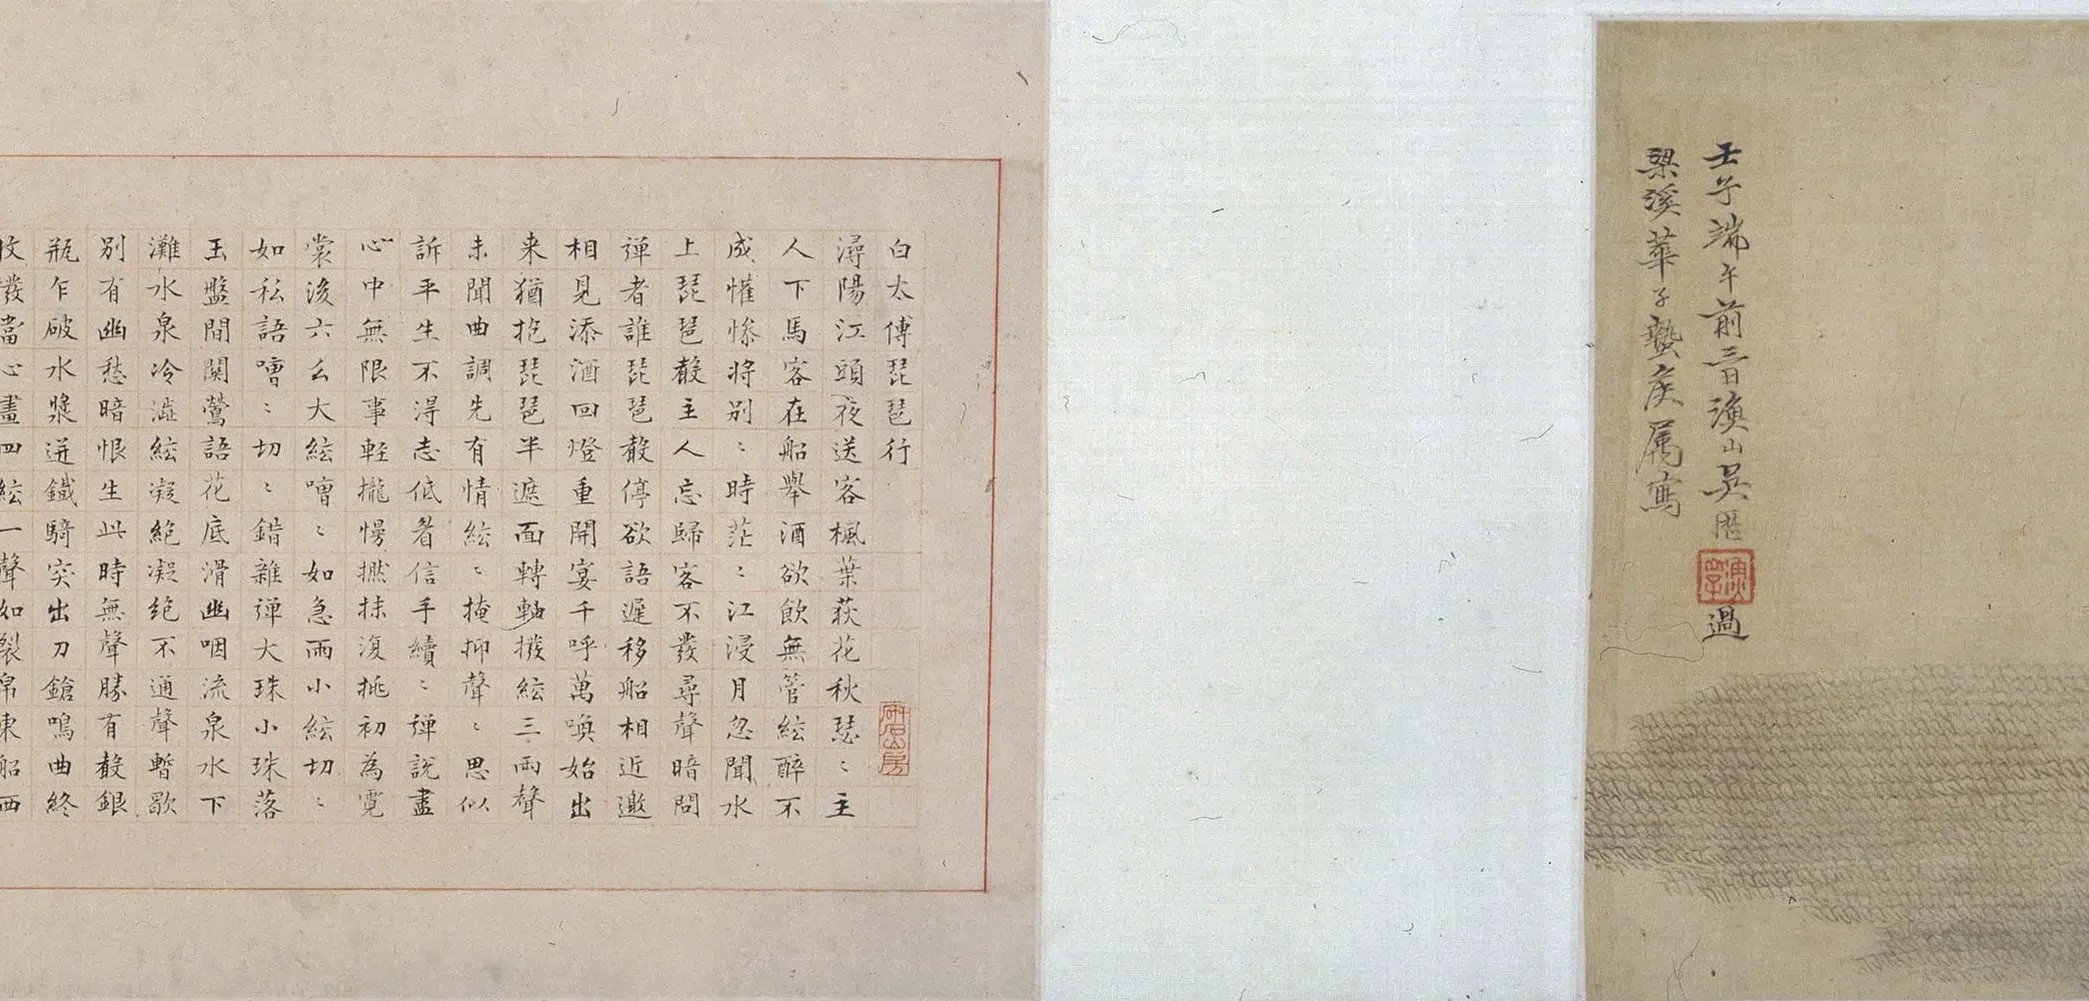 壬子端午前三日漁山吳歷
過
梁溪華子蟄矦属寫
白太傅琵琶行
潯陽江頭夜送客楓葉荻花秋瑟〻主
人下馬客在船舉酒欲飲無管絃醉不
成懽慘將別〻時茫〻江浸月忽聞水
上琵琶聲主人忘歸客不發尋聲暗問
彈者誰琵琶聲停欲語遲移船相近邀
相見添酒回燈重開宴千呼萬喚始出
来猶抱琵琶半遮面轉軸撥絃三兩聲
未聞曲調先有情絃〻掩抑聲〻思似
訴平生不得志低眉信手續〻彈說盡
心中無限事輕攏慢撚抹復挑初為霓
裳後六么大絃嘈〻如急雨小絃切〻
如私語嘈〻切〻錯雜彈大珠小珠落
玉盤間關鶯語花底滑幽咽流泉水下
灘水泉冷澁絃凝絕凝絶不通聲暫歇
別有幽愁暗恨生此時無聲勝有聲銀
瓶乍破水漿迸鐵騎突出刀鎗鳴曲終
收撥當心畫四絃一聲如裂帛東船西